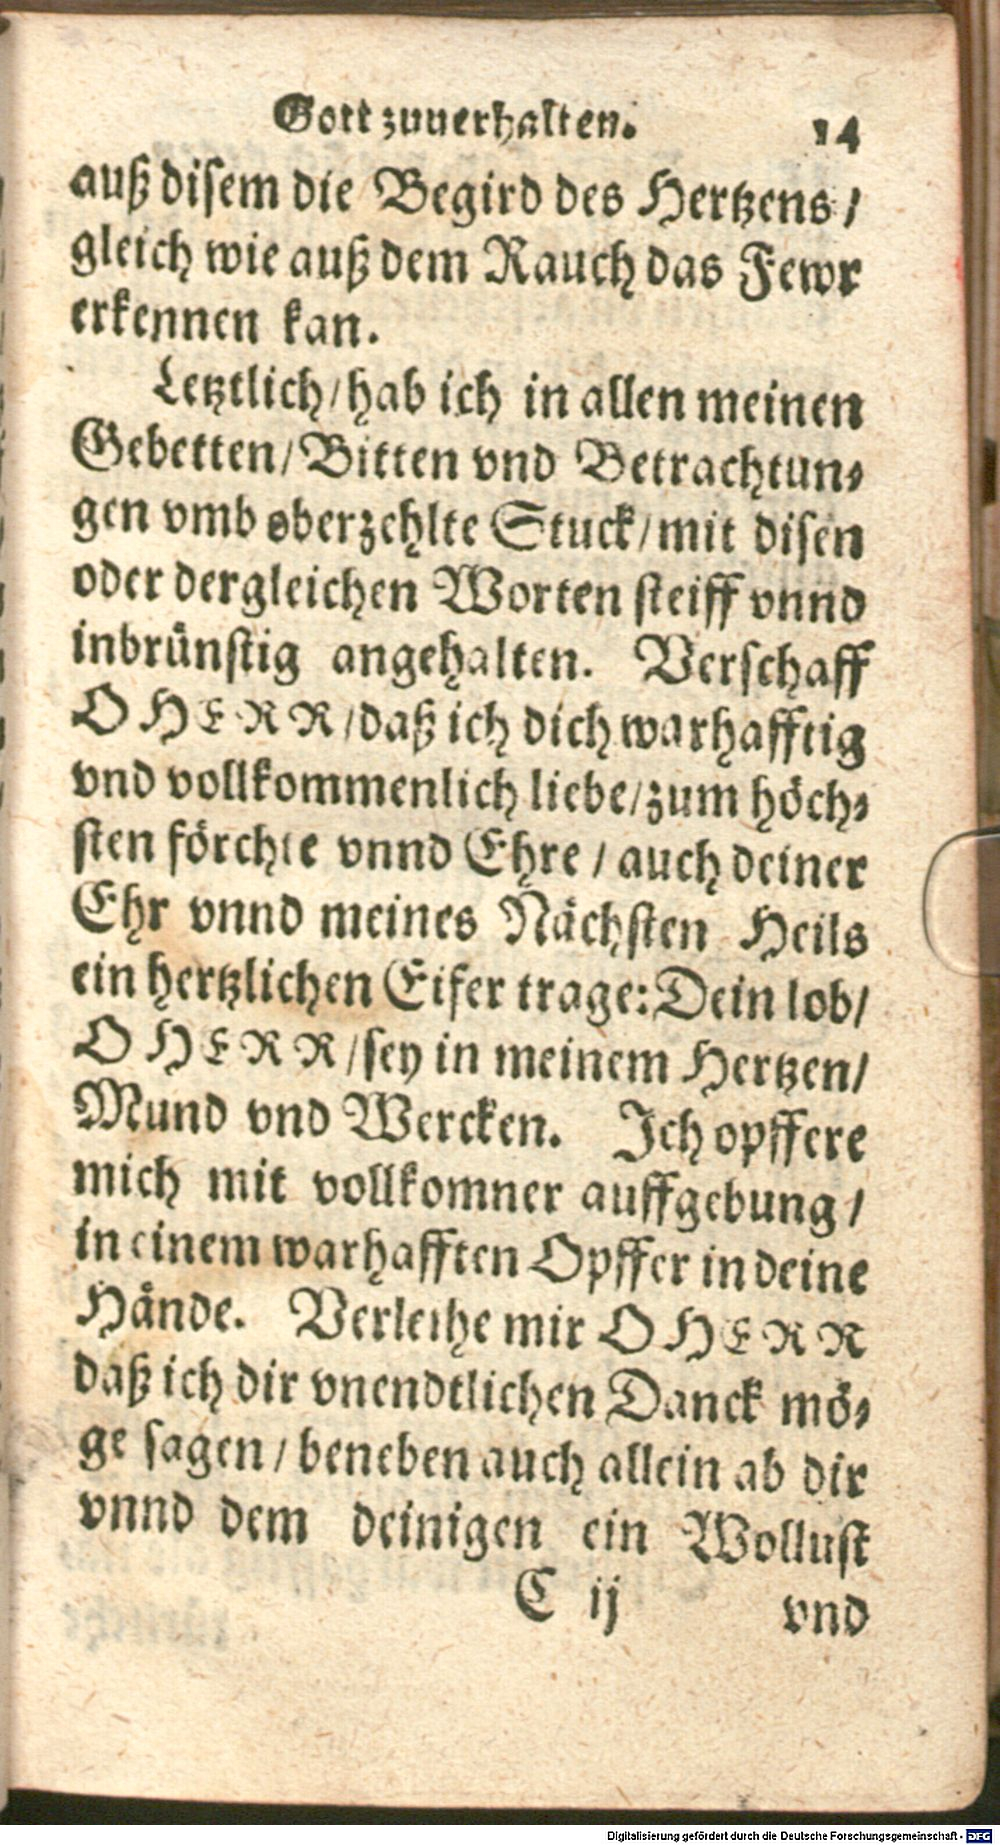 Gott zuuerhalten. 14
auß disem die Begird des Hertzens /
gleich wie auß dem Rauch das Fewr
erkennen kan.
Letztlich / hab ich in allen meinen
Gebetten / Bitten vnd Betrachtun⸗
gen vmb oberzehlte Stuck / mit disen
oder dergleichen Worten steiff vnnd
inbrünstig angehalten. Verschaff
O HERR / daß ich dich warhafftig
vnd vollkommenlich liebe / zum höch⸗
sten förchte vnnd Ehre / auch deiner
Ehr vnnd meines Nächsten Heils
ein hertzlichen Eifer trage: Dein lob /
O HERR / sey in meinem Hertzen /
Mund vnd Wercken. Ich opffere
mich mit vollkomner auffgebung /
in einem warhafften Opffer in deine
Hände. Verleihe mir O HERR
daß ich dir vnendtlichen Danck mö⸗
ge sagen / beneben auch allein ab dir
vnnd dem deinigen ein Wollust
C ij vnd
Digitalisierung gefördert durch die Deutsche Forschungsgemeinschaft - DFG